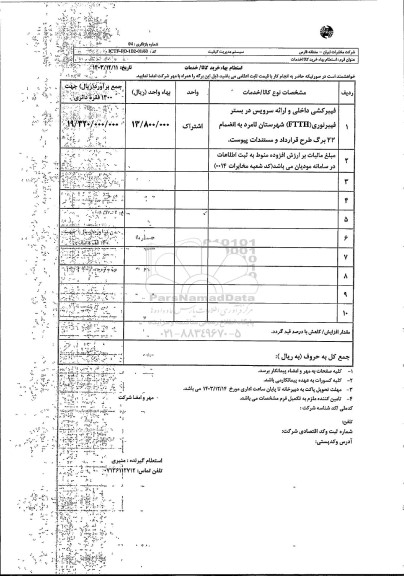 شرکت مخابرات ایران - منطقه فارس
سیستم مدیریت کیفیت
شماره بازنگری: 04
عنوان فرم: استعلام بهاء خرید کالا/خدمات
کد: ICTF-FO-102-0160
استعلام بهاء خرید کالا/خدمات
تاریخ: ۱۴۰۳/۱۲/۱۱
خواهشمند است در صورتیکه حاضر به انجام کار با قیمت ثابت اعلامی می باشید ذیل این برگه را همراه با مهر شرکت امضا نمایید.
ردیف
مشخصات نوع کالا/خدمات
واحد
بهاء واحد (ریال)
جمع برآورد(ریال) جهت ۱۴۰۰ فقره دائری
۱
فیبرکشی داخلی و ارائه سرویس در بستر
فیبرنوری(FTTH) شهرستان لامرد به انضمام
۲۲ برگ طرح قرارداد و مستندات پیوست.
اشتراک
۱۳/۸۰۰/۰۰۰
۱۹/۳۲۰/۰۰۰/۰۰۰
۲
مبلغ مالیات بر ارزش افزوده منوط به ثبت اطلاعات
در سامانه مودیان می باشد(کد شعبه مخابرات ۰۰۱۴)
۳
۴
۵
۶
۷
۸
۹
۱۰
ParsNamadData
۰۲۱-۸۸۳۴۹۶۷۰-۵
مقدار افزایش/کاهش با درصد قید گردد.
جمع کل به حروف (به ریال):
۱- کلیه صفحات به مهر و امضاء پیمانکار برسد.
۲- کلیه کسورات به عهده پیمانکارمی باشد.
۳- مهلت تحویل پاکت به دبیرخانه تا پایان ساعت اداری مورخ ۱۴۰۳/۱۲/۱۶ می باشد.
۴- تامین کننده ملزم به تکمیل فرم مشخصات می باشد.
مهر و امضا شرکت
کدملی /کد شناسه شرکت:
تلفن:
شماره ثبت وکد اقتصادی شرکت:
آدرس وکدپستی:
استعلام گیرنده: منیری
تلفن تماس: ۰۷۱۳۶۱۱۲۷۱۲